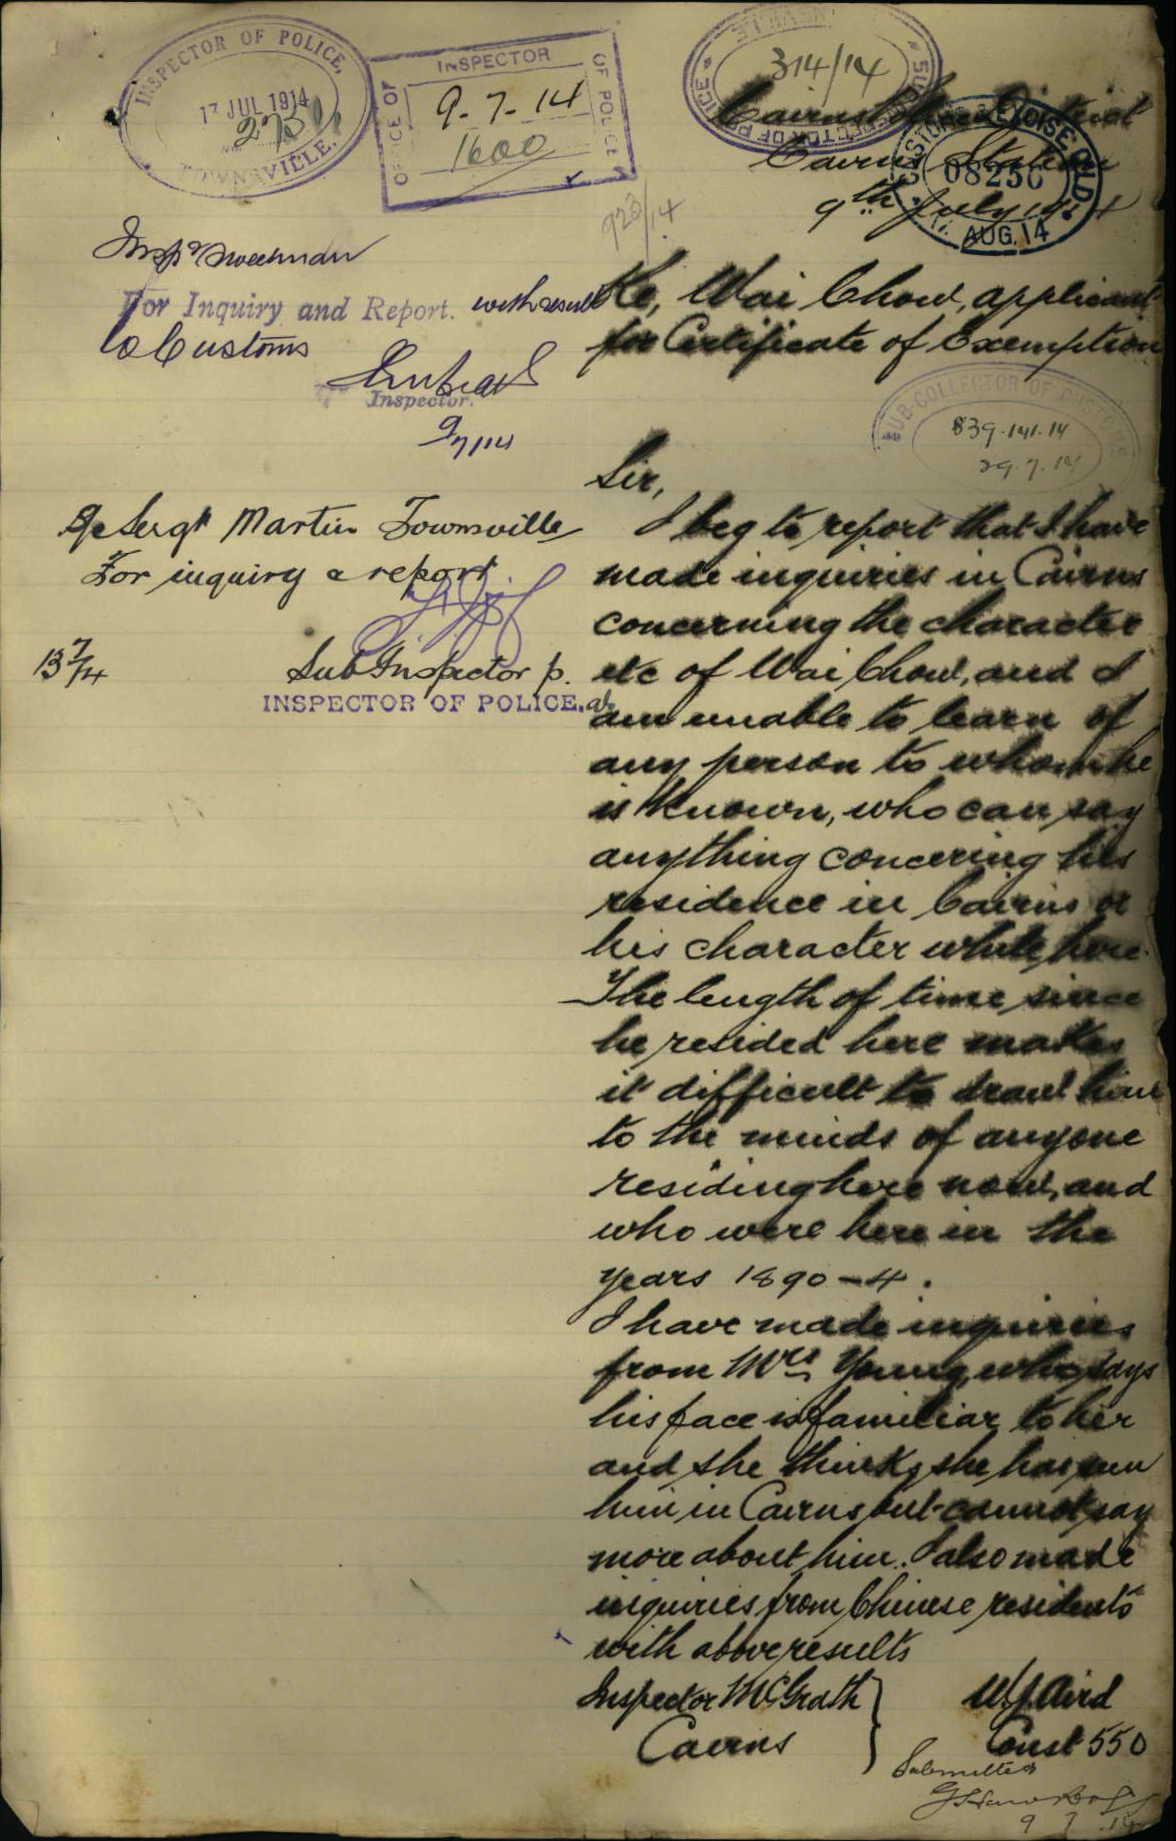 INSPECTOR OF POLICE,
17 JUL 1914
TOWNSVILLE.
OFFICE OF INSPECTOR OF POLICE
9-7-14
1600
314/14
INSPECTOR OF POLICE
Cairns Police District
Cairns Station
9th July 1914
CUSTOMS & EXCISE QLD.
08256
AUG. 14
923/14
Insp Sweetman
For Inquiry and Report. with result
to Customs
Inspector.
9/7/14
Re, Wai Chow, applicant
for Certificate of Exemption
SUB-COLLECTOR OF CUSTOMS
839.141.14
29.7.14
Sir,
I beg to report that I have
made inquiries in Cairns
concerning the character
etc of Wai Chow, and I
am unable to learn of
any person to whom he
is known, who can say
anything concering his
residence in Cairns or
his character while here.
The length of time since
he resided here makes
it difficult to brawl him
to the minds of anyone
residing here now, and
who were here in the
years 1890-4.
I have made inquiries
from Mrs Young, who says
his face is familiar to her
and she thinks she has seen
him in Cairns but cannot say
more about him. I also made
inquiries from Chinese residents
with above results
Inspector McGrath } W J Aird
Cairns } Const 550
Submitted
9 7 14
Ag Sergt Martin Townsville
For inquiry & report
13/7/14
Sub Inspector p.
INSPECTOR OF POLICE.